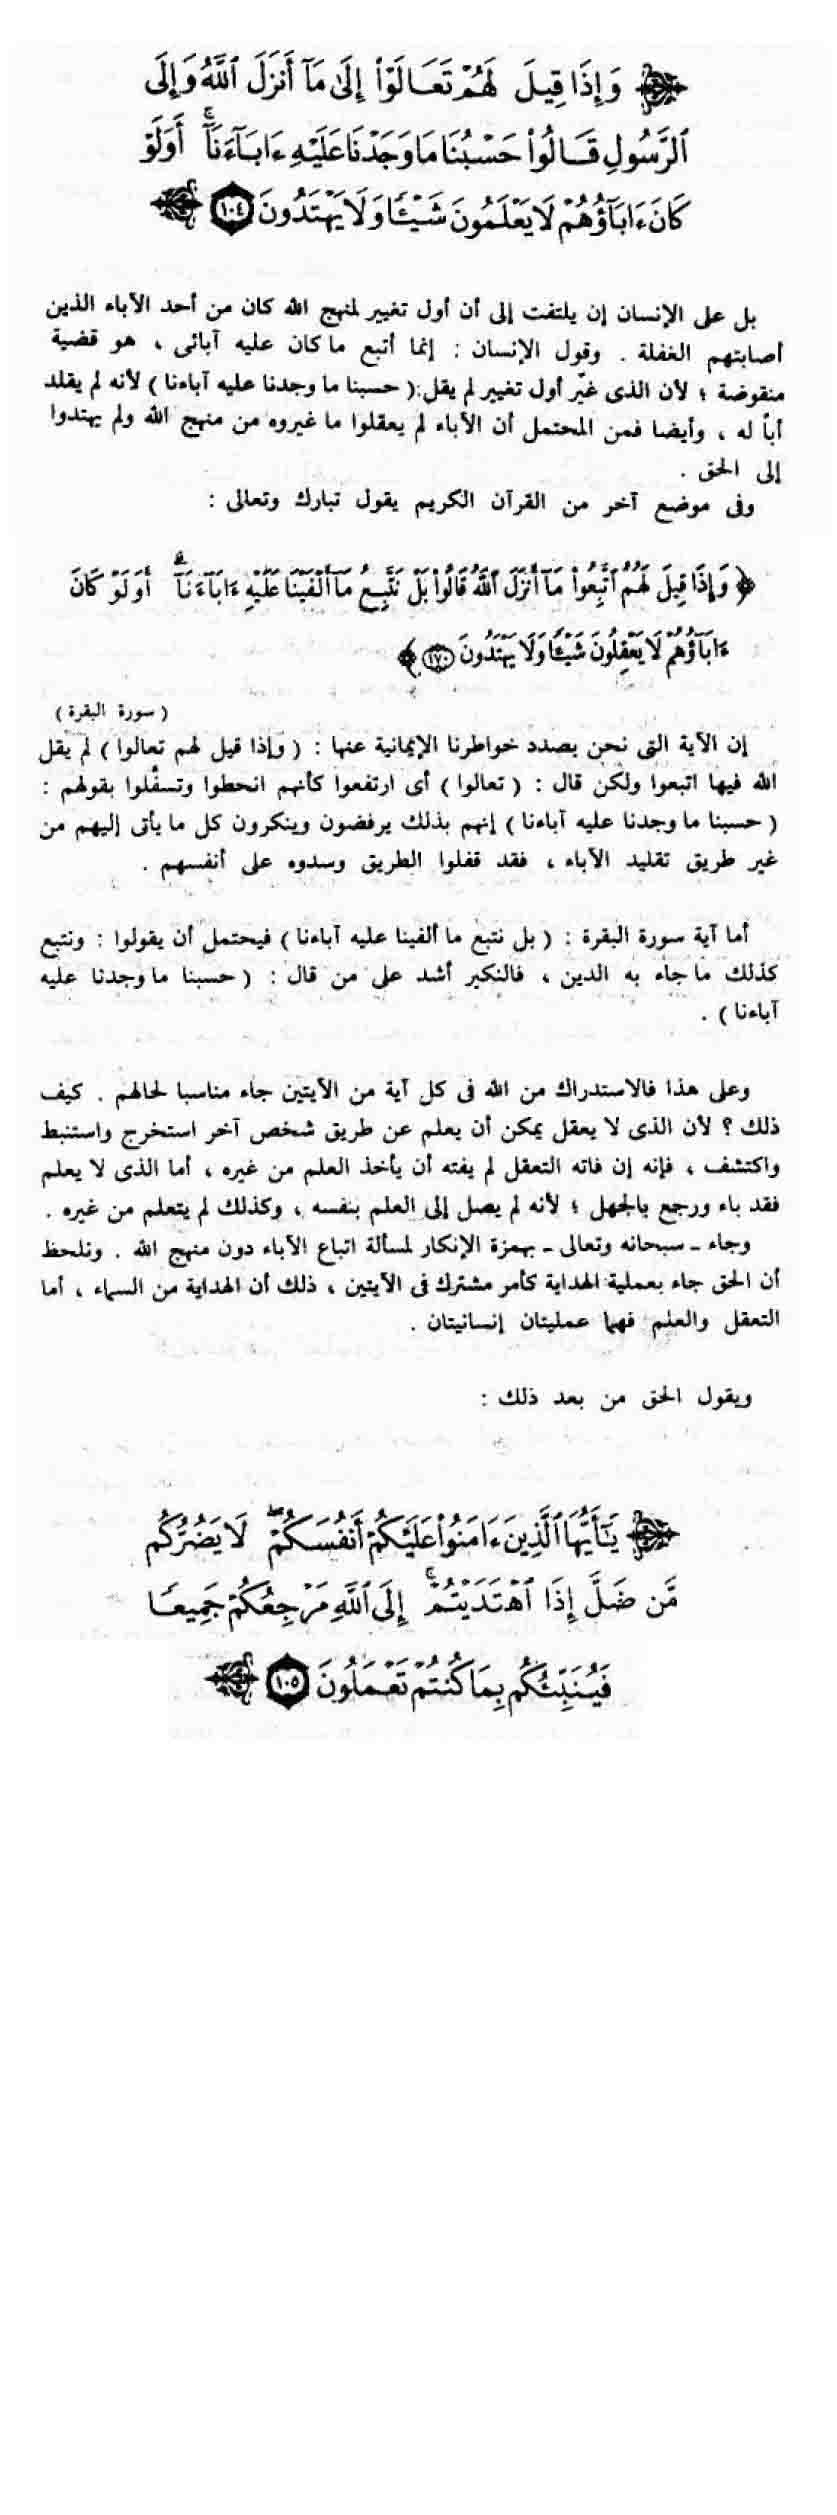 وَإِذَا قِيلَ لَهُمْ تَعَالَوْا۟ إِلَىٰ مَآ أَنزَلَ ٱللَّهُ وَإِلَى
ٱلرَّسُولِ قَالُوا۟ حَسْبُنَا مَا وَجَدْنَا عَلَيْهِ ءَابَآءَنَآ ۚ أَوَلَوْ
كَانَ ءَابَآؤُهُمْ لَا يَعْلَمُونَ شَيْـًٔا وَلَا يَهْتَدُونَ ١٠٤
بل على الإنسان إن يلتفت إلى أن أول تغيير لمنهج الله كان من أحد الآباء الذين
أصابتهم الغفلة . وقول الإنسان : إنما أتبع ما كان عليه آبائى ، هو قضية
منقوضة ؛ لأن الذى غيّر أول تغيير لم يقل : ( حسبنا ما وجدنا عليه آباءنا ) لأنه لم يقلد
أباً له ، وأيضا فمن المحتمل أن الآباء لم يعقلوا ما غيروه من منهج الله ولم يهتدوا
إلى الحق .
وفى موضع آخر من القرآن الكريم يقول تبارك وتعالى :
﴿ وَإِذَا قِيلَ لَهُمُ ٱتَّبِعُوا۟ مَآ أَنزَلَ ٱللَّهُ قَالُوا۟ بَلْ نَتَّبِعُ مَآ أَلْفَيْنَا عَلَيْهِ ءَابَآءَنَآ ۗ أَوَلَوْ كَانَ
ءَابَآؤُهُمْ لَا يَعْقِلُونَ شَيْـًٔا وَلَا يَهْتَدُونَ ١٧٠ ﴾
( سورة البقرة )
إن الآية التى نحن بصدد خواطرنا الإيمانية عنها : ( وإذا قيل لهم تعالوا ) لم يقل
الله فيها اتبعوا ولكن قال : ( تعالوا ) أى ارتفعوا كأنهم انحطوا وتسفّلوا بقولهم :
( حسبنا ما وجدنا عليه آباءنا ) إنهم بذلك يرفضون وينكرون كل ما يأتى إليهم من
غير طريق تقليد الآباء ، فقد قفلوا الطريق وسدوه على أنفسهم .
أما آية سورة البقرة : ( بل نتبع ما ألفينا عليه آباءنا ) فيحتمل أن يقولوا : ونتبع
كذلك ما جاء به الدين ، فالنكير أشد على من قال : ( حسبنا ما وجدنا عليه
آباءنا ) .
وعلى هذا فالاستدراك من الله فى كل آية من الآيتين جاء مناسبا لحالهم . كيف
ذلك ؟ لأن الذى لا يعقل يمكن أن يعلم عن طريق شخص آخر استخرج واستنبط
واكتشف ، فإنه إن فاته التعقل لم يفته أن يأخذ العلم من غيره ، أما الذى لا يعلم
فقد باء ورجع بالجهل ؛ لأنه لم يصل إلى العلم بنفسه ، وكذلك لم يتعلم من غيره .
وجاء ـ سبحانه وتعالى ـ بهمزة الإنكار لمسألة اتباع الآباء دون منهج الله . ونلحظ
أن الحق جاء بعملية الهداية كأمر مشترك فى الآيتين ، ذلك أن الهداية من السماء ، أما
التعقل والعلم فهما عمليتان إنسانيتان .
ويقول الحق من بعد ذلك :
يَـٰٓأَيُّهَا ٱلَّذِينَ ءَامَنُوا۟ عَلَيْكُمْ أَنفُسَكُمْ ۖ لَا يَضُرُّكُم
مَّن ضَلَّ إِذَا ٱهْتَدَيْتُمْ ۚ إِلَى ٱللَّهِ مَرْجِعُكُمْ جَمِيعًا
فَيُنَبِّئُكُم بِمَا كُنتُمْ تَعْمَلُونَ ١٠٥